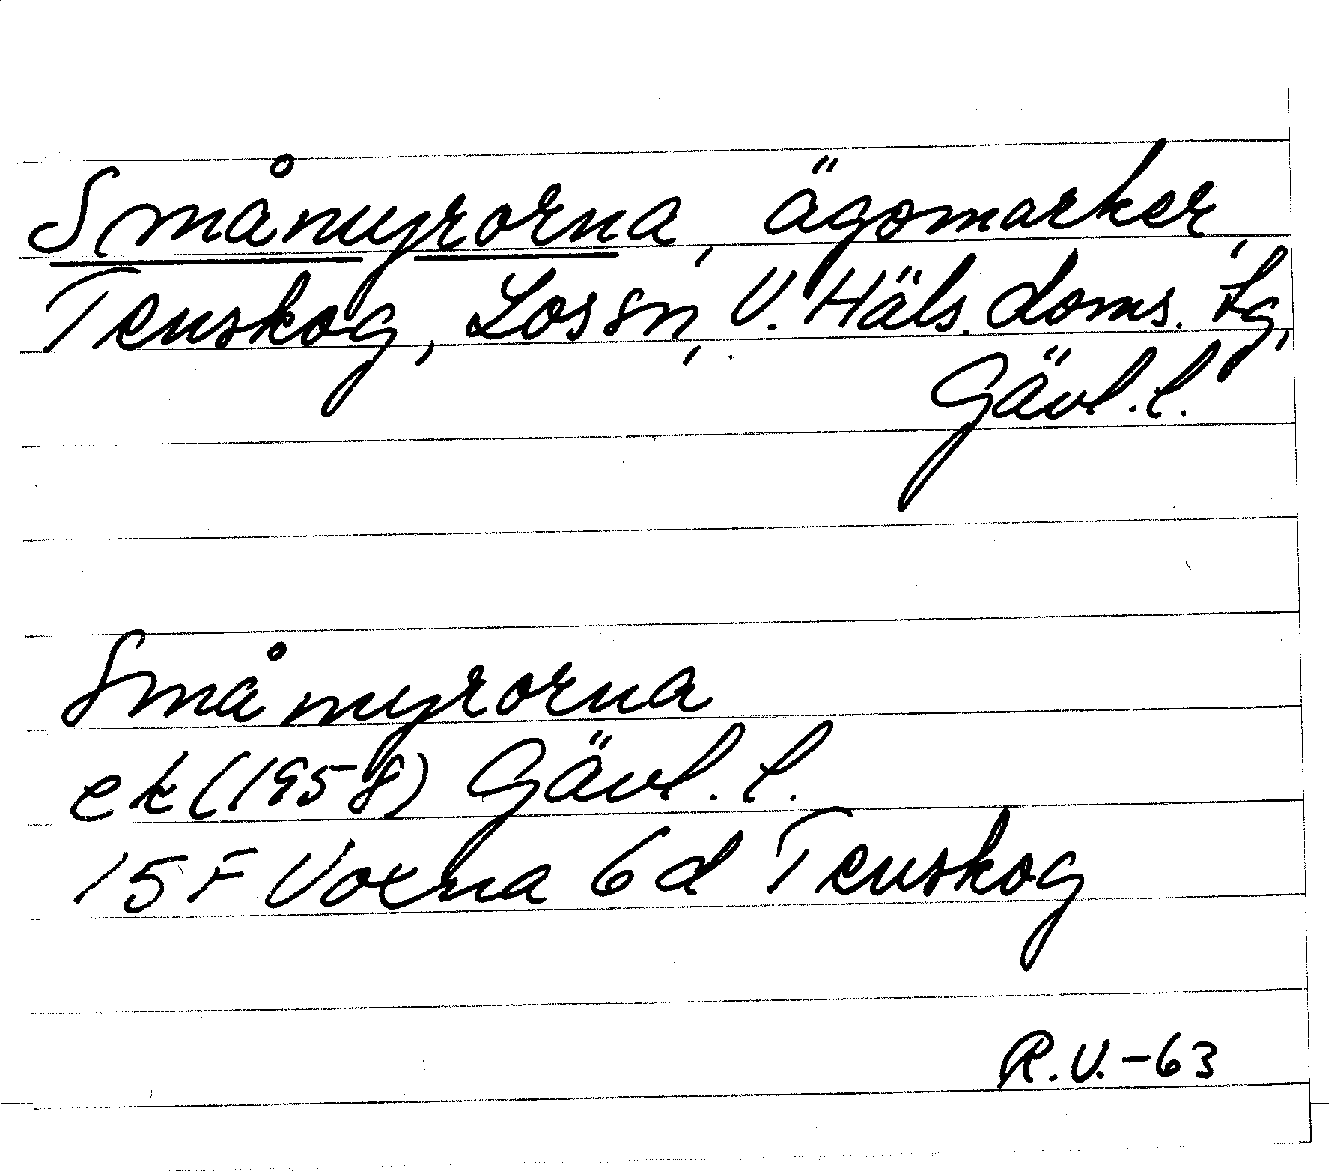 Småmyrorna, ägomarker,
Tenskog, Los sn, V. Häls. doms. tg,
Gävl. l.
Småmyrorna
ek (1958) Gävl. l.
15 F Voxna 6d Tenskog
R.V. -63